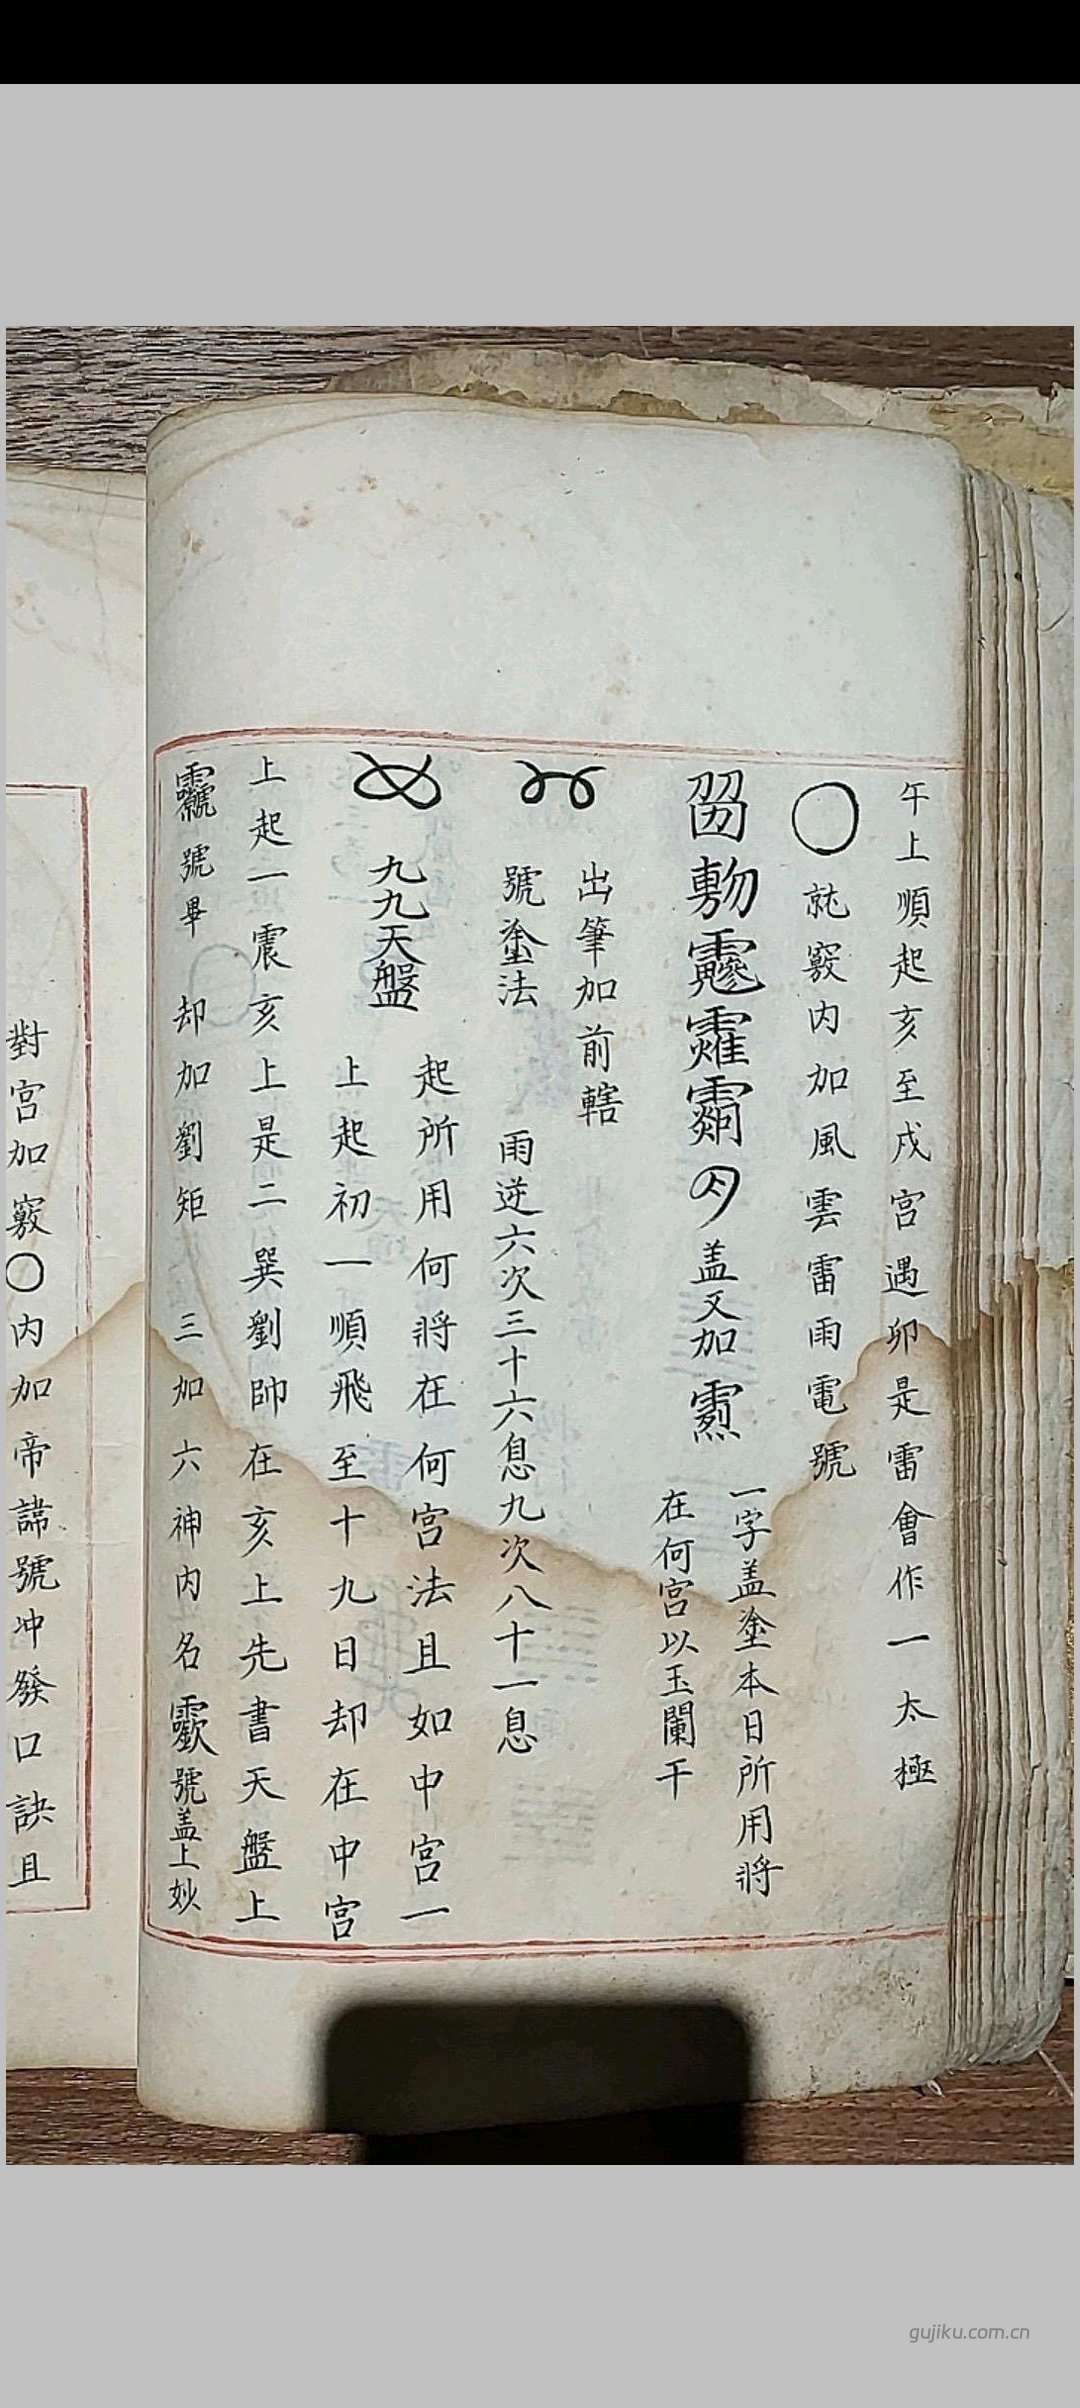 午上順起亥至戌宮遇卯是雷會作一太極
〇就竅内加風雲雷雨電號
盖又加
一字盖塗本日所用將
在何宮以玉闌干
出筆加前轄
號塗法
雨逆六次三十六息九次八十一息
九九天盤
起所用何將在何宮法且如中宮一
上起初一順飛至十九日却在中宮
上起一震亥上是二巽劉帥在亥上先書天盤上
號畢 却加劉矩 三加六神内名
號盖上妙
對宮加竅〇内加帝諱號冲發口訣且
gujiku.com.cn